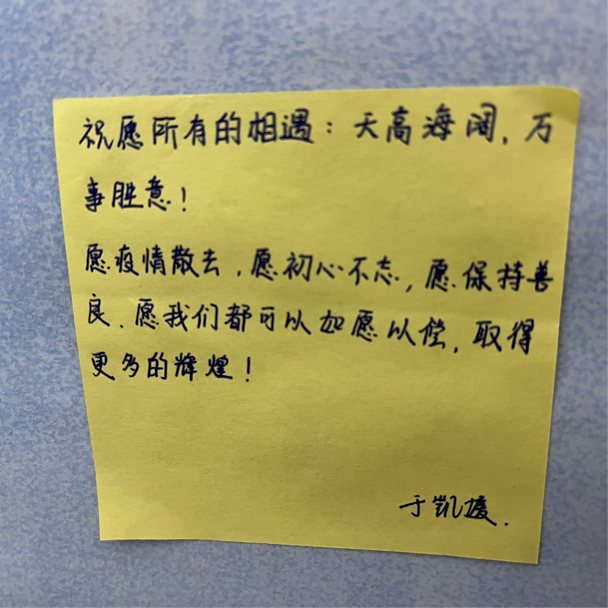 祝愿所有的相遇：天高海阔，万
事胜意！
愿疫情散去，愿初心不忘，愿保持善
良，愿我们都可以如愿以偿，取得
更多的辉煌！
于凯媛.